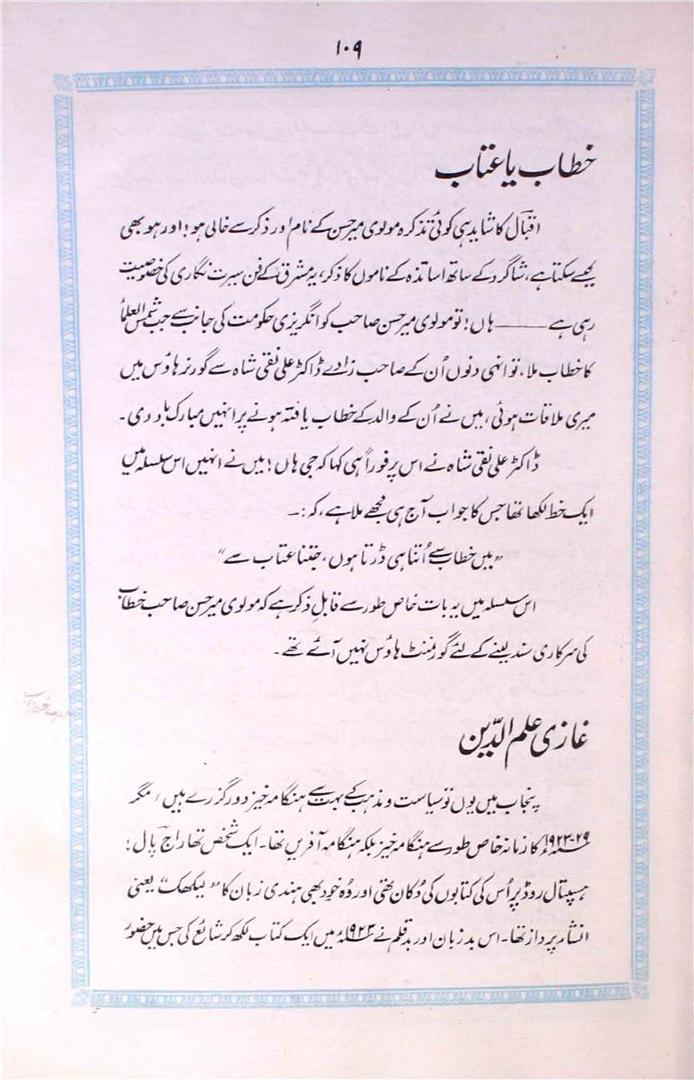 ۱۰۹
خطاب یا عتاب
اقبال کا شاید ہی کوئی تذکرہ مولوی میر حسن کے نام اور ذکر سے خالی ہو! اور ہو بھی
کیسے سکتا ہے، شاگرد کے ساتھ اساتذہ کے ناموں کا ذکر، یہ مشرق کے فن سیرت نگاری کی خصوصیت
رہی ہے ——— ہاں! تو مولوی میر حسن صاحب کو انگریزی حکومت کی جانب سے جب شمس العلماء
کا خطاب ملا، تو انہی دنوں اُن کے صاحب زادے ڈاکٹر علی نقی شاہ سے گورنر ہاؤس میں
میری ملاقات ہوئی، میں نے اُن کے والد کے خطاب یافتہ ہونے پر انہیں مبارک باد دی۔
ڈاکٹر علی نقی شاہ نے اس پر فوراً ہی کہا کہ جی ہاں! میں نے انہیں اس سلسلہ میں
ایک خط لکھا تھا جس کا جواب آج ہی مجھے ملا ہے، کہ:۔
”میں خطاب سے اُتنا ہی ڈرتا ہوں، جتنا عتاب سے“
اس سلسلہ میں یہ بات خاص طور سے قابلِ ذکر ہے کہ مولوی میر حسن صاحب خطاب
کی سرکاری سند لینے کے لئے گورنمنٹ ہاؤس نہیں آئے تھے۔
غازی علم الدّین
پنجاب میں یوں تو سیاست و مذہب کے بہت سے ہنگامہ خیز دور گزرے ہیں، مگر
۲۹-۱۹۲۳ء کا زمانہ خاص طور سے ہنگامہ خیز بلکہ ہنگامہ آفریں تھا۔ ایک شخص تھا راج پال!
ہسپتال روڈ پر اُس کی کتابوں کی دُکان تھی اور وُہ خود بھی ہندی زبان کا ”لیکھک“ یعنی
انشاء پرداز تھا۔ اس بد زبان اور بد قلم نے ۱۹۲۳ء میں ایک کتاب لکھ کر شائع کی جس میں حضور